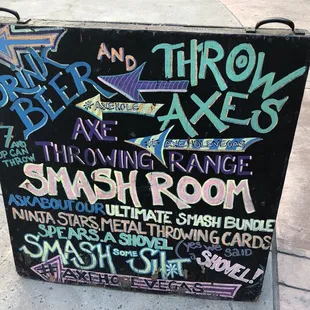 DRINK
BEER
AND
THROW
AXES
#AXEHOLE
7 AND
UP CAN
THROW
AXE
THROWING RANGE
SMASH ROOM
ASK ABOUT OUR ULTIMATE SMASH BUNDLE
NINJA STARS, METAL THROWING CARDS
SPEARS, A SHOVEL
(yes we said
a SHOVEL!)
SMASH SOME SH*T
#AXEHOLEVEGAS